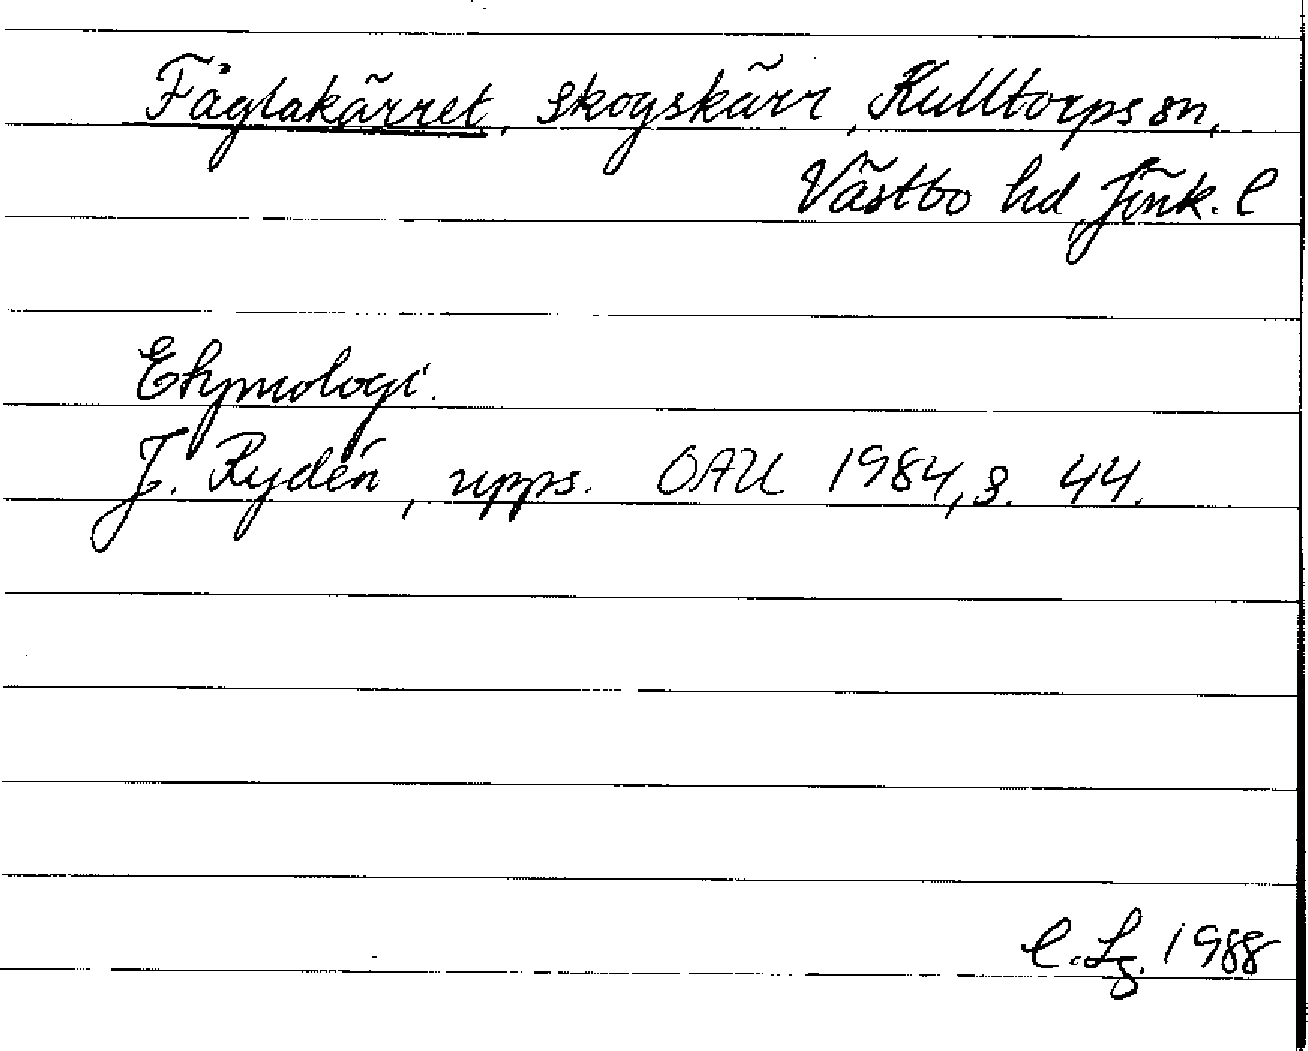 Fåglakärret, skogskärr, Kulltorps sn,
Västbo hd Jönk. l
Etymologi.
J. Rydén, upps. OAU 1984, s. 44.
C. Lg. 1988